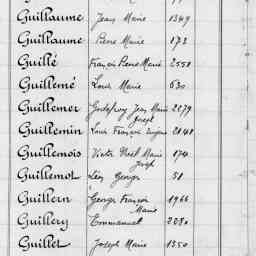 Guillaume Jean Marie 1349
Guillaume Rene Marie 173
Guillé François Pierre Marie 2551
Guillemé Louis Marie 630
Guillemer Godefroy Jean Marie 2279
Joseph
Guillemin Louis François Eugène 2048
Guillemois Victor Noël Marie 174
Joseph
Guillemot Léon Georges 51
Guillern Georges François 1966
Marie
Guillery Emmanuel 2080
Guillet Joseph Marie 1350